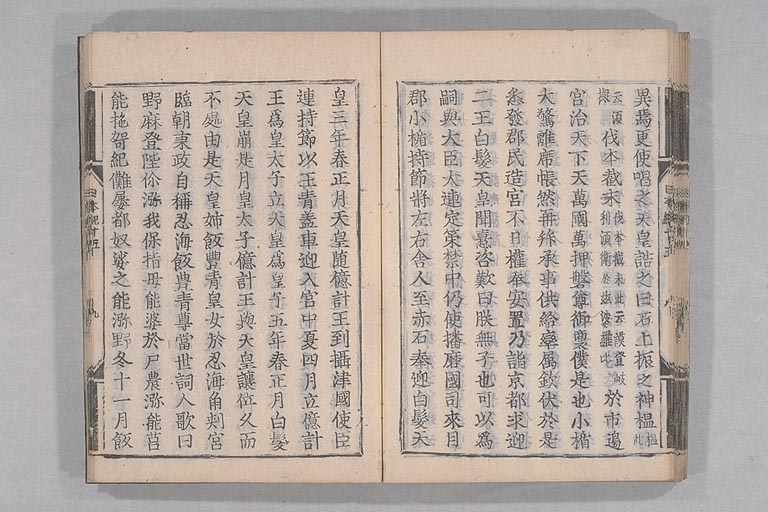 異焉更使唱之天皇誥之曰石上振之神榲榲此
云須擬伐本截末伐本截末此云謨登岐利須衛於茲婆羅比於市邊
宮治天下天萬國萬押磐尊御裔僕是也小楯
大驚離席悵然再拜承事供給率屬欽伏於是
悉發郡民造宮不日權奉安置乃詣京都求迎
二王白髮天皇聞憙咨歎曰朕無子也可以為
嗣與大臣大連定策禁中仍使播磨國司來目
郡小楯持節將左右舍人至赤石奉迎白髮天
皇三年春正月天皇隨億計王到攝津國使臣
連持節以王青蓋車迎入宮中夏四月立億計
王為皇太子立天皇為皇子五年春正月白髮
天皇崩是月皇太子億計王與天皇讓位久而
不處由是天皇姉飯豐青皇女於忍海角刺宮
臨朝秉政自稱忍海飯豐青尊當世詞人歌曰
野麻登陛你瀰我保指母能婆於尸農瀰能莒
能拖哿紀儺屢都奴娑之能瀰野冬十一月飯